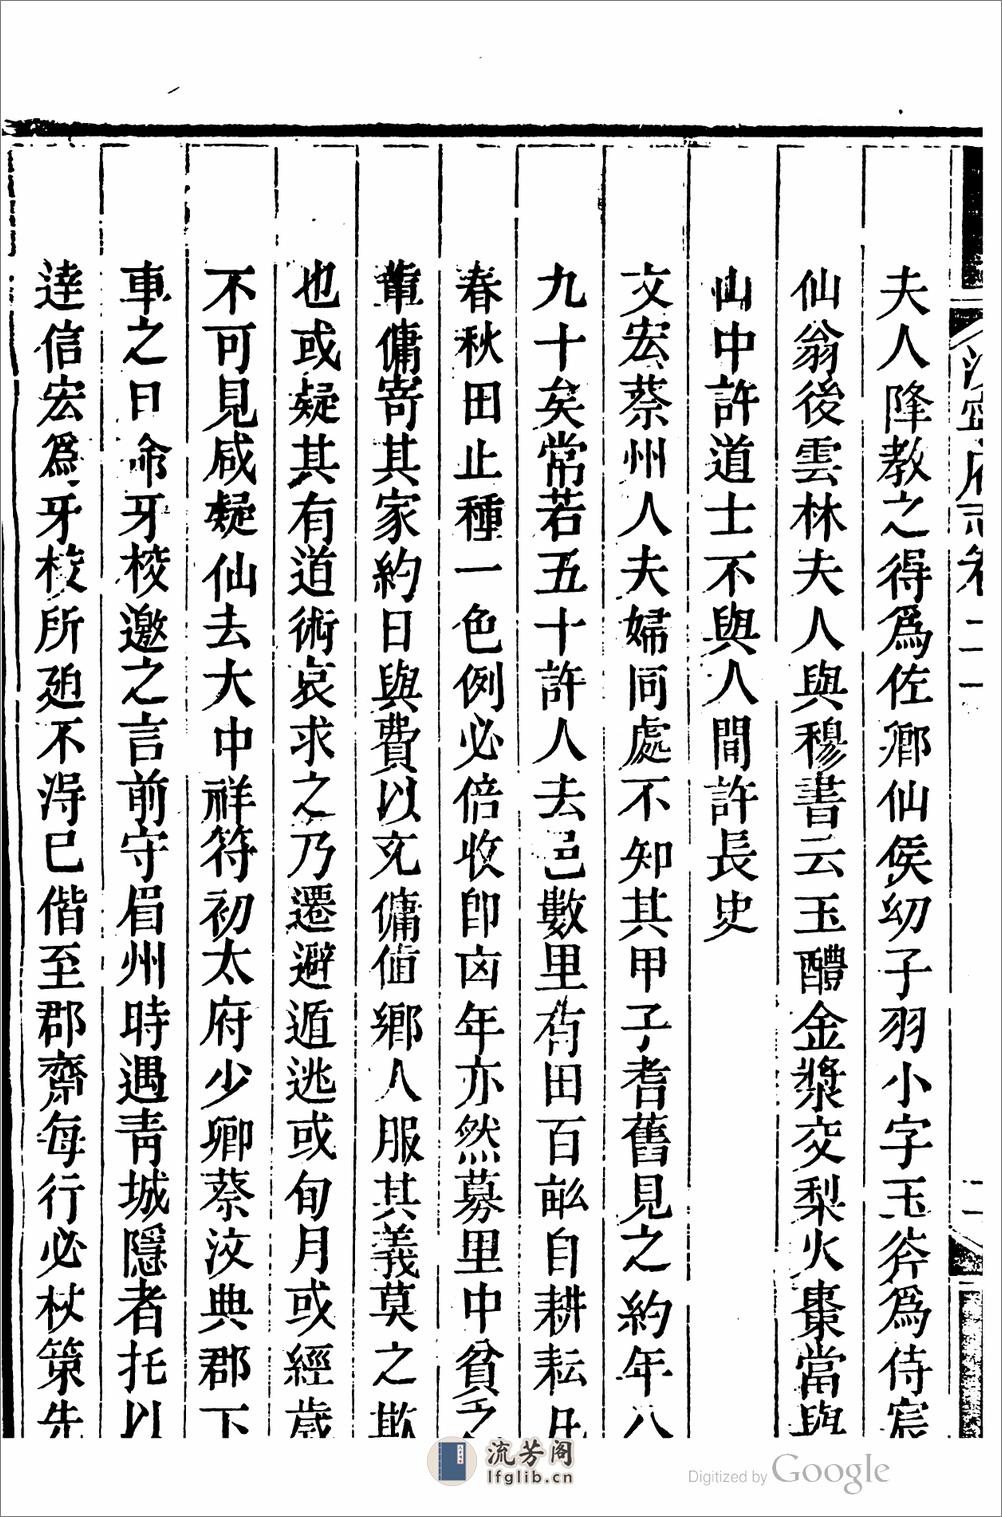 夫人降教之得爲佐卿仙侯幼子羽小字玉斧爲侍宸
仙翁後雲林夫人與穆書云玉醴金漿交梨火棗當與
山中許道士不與人間許長史
文宏蔡州人夫婦同處不知其甲子耆舊見之約年八
九十矣常若五十許人去邑數里有田百畝自耕耘凡
春秋田止種一色例必倍收卽凶年亦然募里中貧乏
輩傭寄其家約日與費以充傭值鄉人服其義莫之欺
也或疑其有道術哀求之乃遷避遁逃或旬月或經歲
不可見咸疑仙去大中祥符初太府少卿蔡汶典郡下
車之日命牙校邀之言前守眉州時遇青城隱者托以
達信宏爲牙校所廹不得已偕至郡齋每行必杖策先
府志卷二十一
流芳阁
lfglib.cn
Digitized by Google